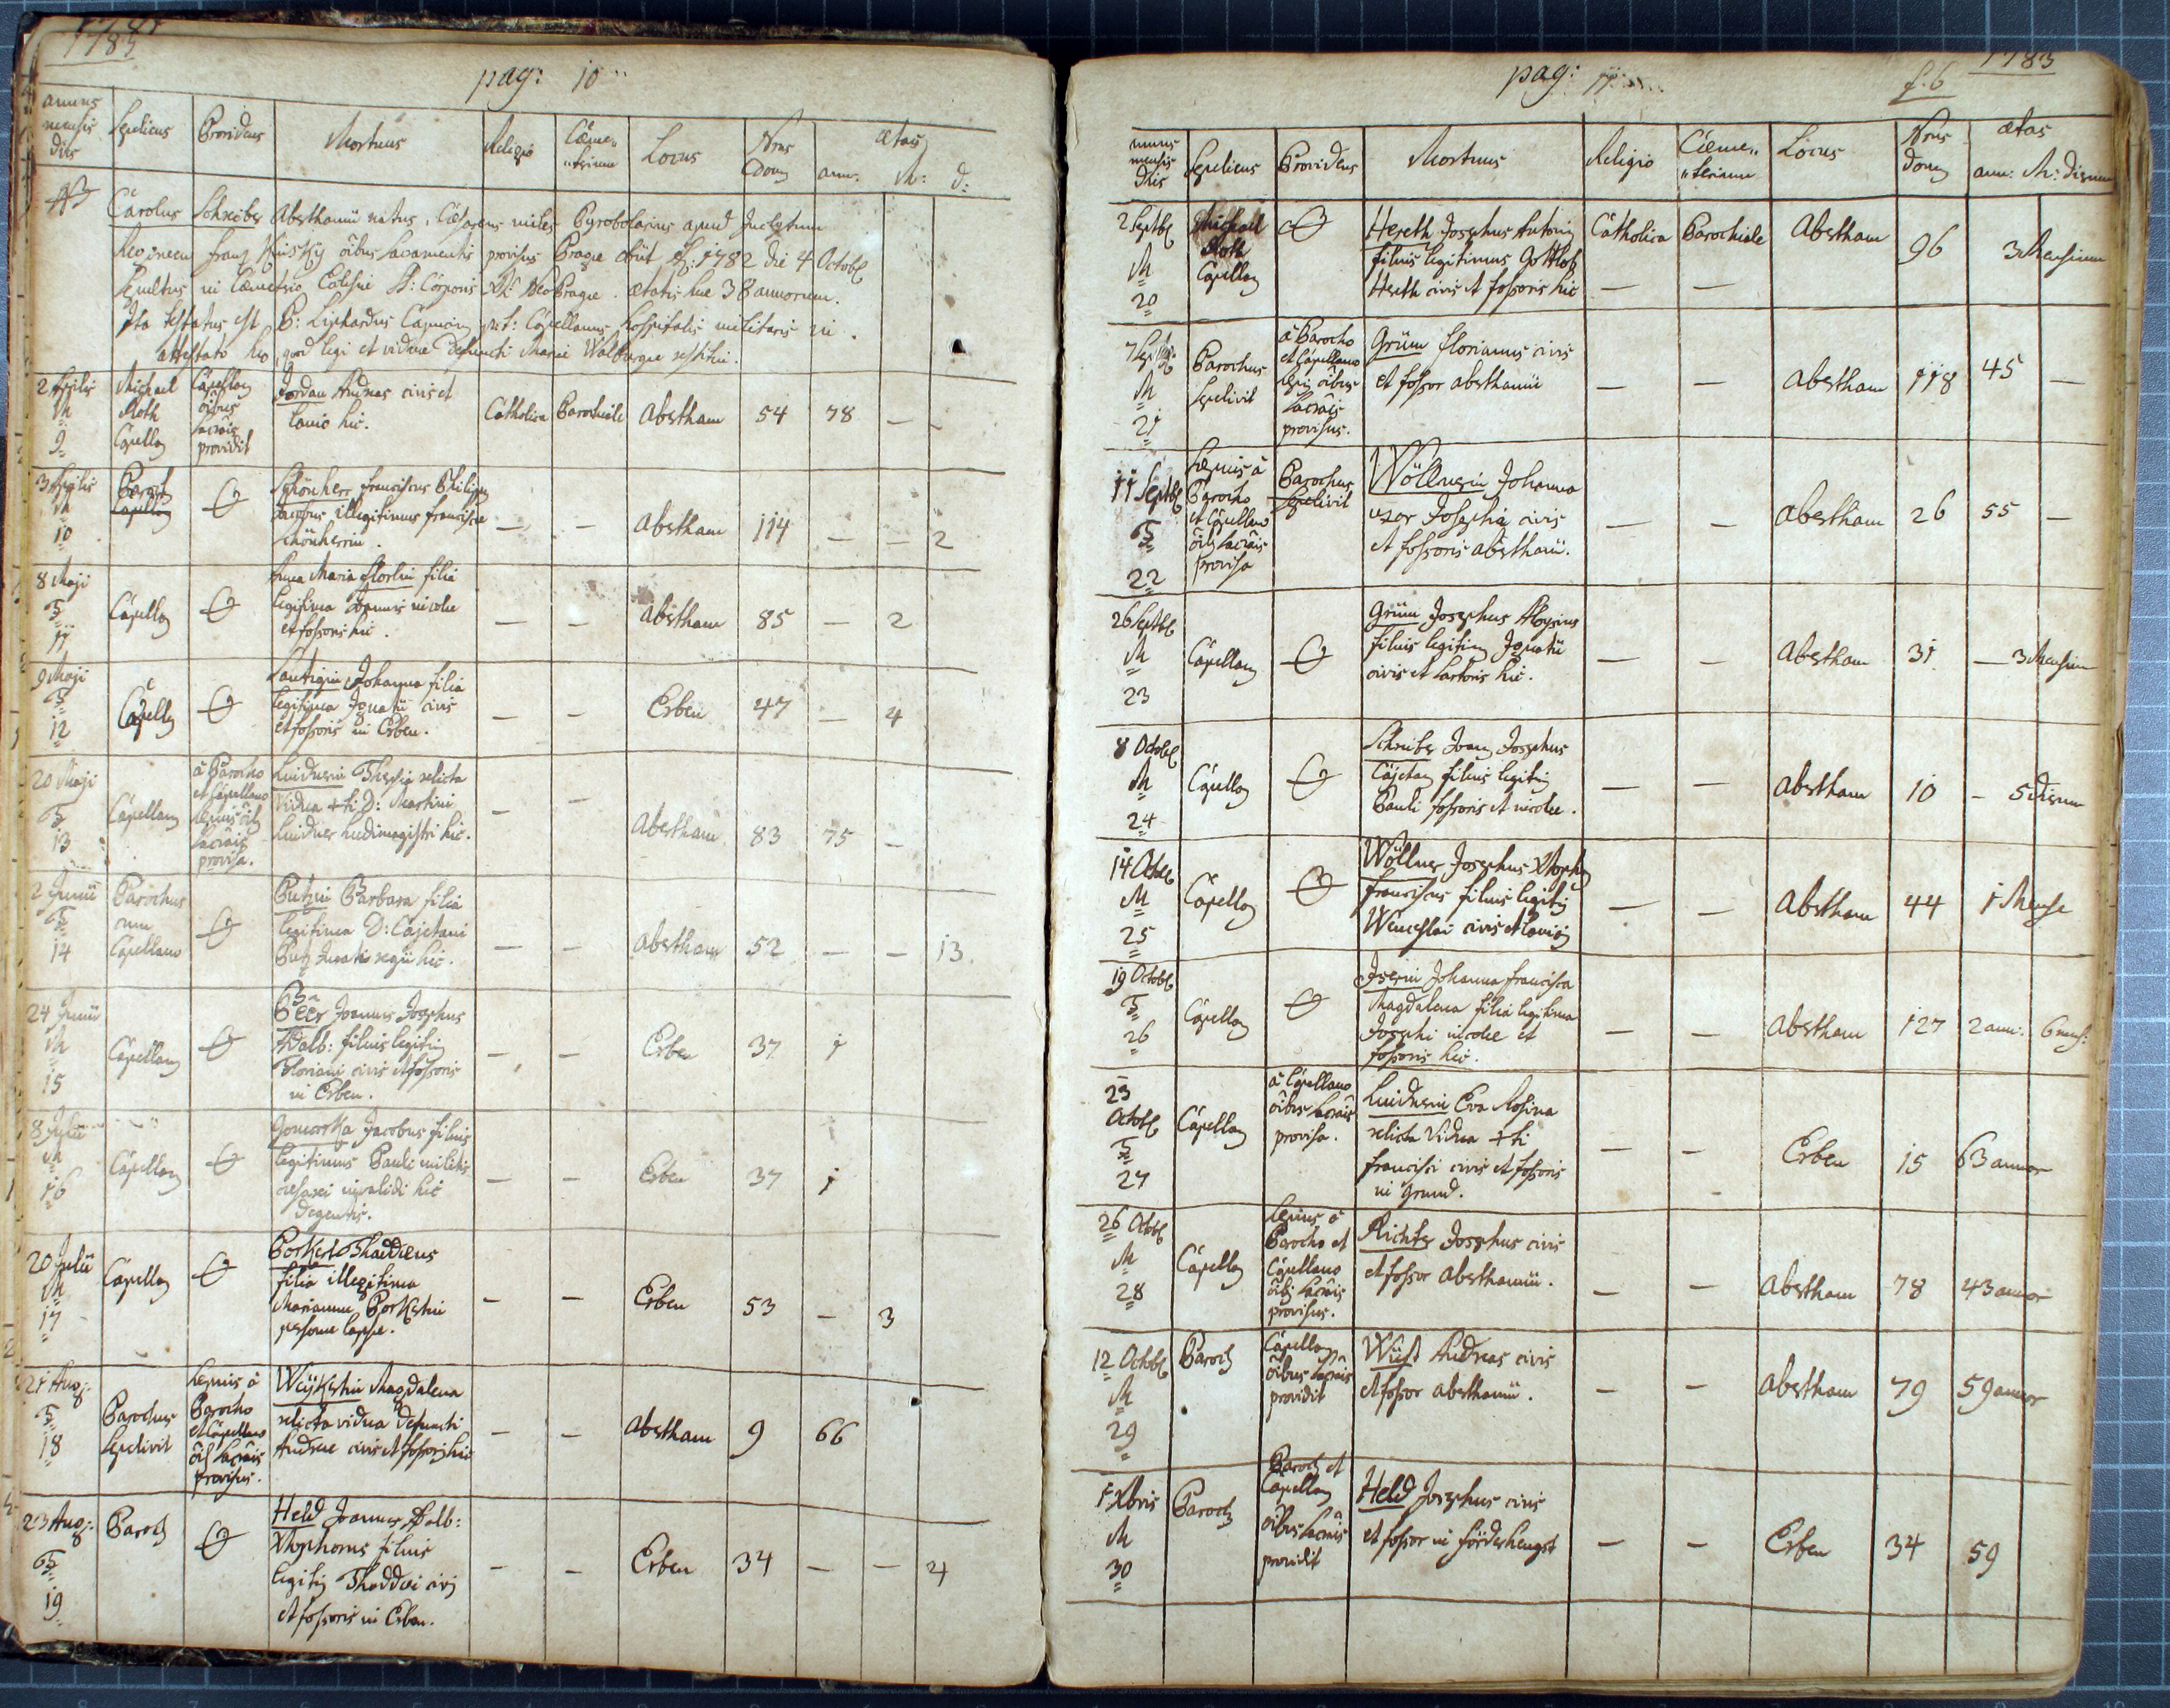 1783
pag: 10
annus mensis dies Sepeliens Providens Mortuus Religio Cæme„ „terium Locus Nrus Domus ætas ann: M: d:
NB Carolus Schreiber Absthamii natus, Cæsareus miles Pyrobolarius apud Inclytum
Regimen Franz Kinsky oibus Sacramentis provisus Pragæ obiit 1782 die 4 Octob
Sepultus in Cæmeterio Ecclesiæ S: Corporis Pragæ. ætatis suæ 38 annorum.
Ita testatus est P: Liphardus Capucin p:t: Capellanus Hospitalis militaris in
attestato suo, quod legi et viduæ defuncti Mariæ Walburgæ restitui.
2 Aprilis
M
9
Michael
Roth
Capellan
Capellan
oibus
sacrais
providit
Jordan Andreas civis et
lanio hic.
Catholica Parochiale Abstham 54 78 — —
3 Aprilis
M
10
Paroch
Capellan
Schönherr Franciscus Philipp
Jacobus illegitimus Franciscæ
Schönherrin.
— — Abstham 114 — — 2
8 Maji
F
11
Capellan
Anna Maria Florlin filia
legitima Joannis incolæ
et fossoris hic.
— — Abstham 85 — 2
9 Maji
F
12
Capellan
Lantigin Johanna filia
legitima Ignatii civis
et fossoris in Erben.
— — Erben 47 — 4
20 Maji
F
13
Capellan
à Parocho
et Capellano
sæpius oib
sacrais
provisa.
Lindnerin Theresia relicta
vidua +ti D: Martini
Lindner Ludimagistri hic.
— — Abstham 83 75 —
2 Junii
F
14
Parochus
cum
Capellano
Putzin Barbara filia
legitima D: Cajetani
Putz Jurati regii hic.
— — Abstham 52 — — 13
24 Junii
M
15
Capellan
Pëër Joannes Josephus
Adalb: filius legitim
Floriani civis et fossoris
in Erben.
— — Erben 37 1
8 Julii
M
16
Capellan
Goworka Jacobus filius
legitimus Pauli militis
cæsarei invalidi hic
degentis.
— — Erben 37 1
20 Julii
M
17
Capellan
Porkert Thaddæus
filia illegitima
Mariannæ Porkertin
personæ lapsæ.
— — Erben 53 — 3
21 Aug:
F
18
Parochus
sepelivit
sæpius à
Parocho
et Capellano
oib sacrais
provisus.
Weÿkertin Magdalena
relicta vidua defuncti
Andreæ civis et fossoris hic
— — Abstham 9 66
23 Aug:
F
19
Paroch
Held Joannes Adalb:
Xtophorus filius
legitim Thaddæi civis
et fossoris in Erben.
— — Erben 34 — — 4
pag: 11
f. 6
1783
annus mensis dies Sepeliens Providens Mortuus Religio Cæme„ „terium Locus Nrus domus ætas ann: M: dierum
2 Septb
M
20
Michael
Roth
Capellan
Hereth Josephus Antonius
filius legitimus Gottlob
Hereth civis et fossoris hic
Catholica Parochiale Abstham 96 3 Mensium
— —
7 Septb
M
21
Parochus
sepelivit
à Parocho
et Capellano
sæpius oibus
sacrais
provisus.
Grüm Florianus civis
et fossor absthamii
— — Abstham 118 45 —
11 Septb
F
22
Sæpius à
Parocho
et Capellano
oib sacrais
provisa
Parochus
sepelivit
Wöllnerin Johanna
uxor Josephi civis
et fossoris absthamii.
— — Abstham 26 55 —
26 Septb
M
23
Capellan
Grüm Josephus Aloysius
filius legitim Ignatii
civis et sartoris hic.
— — Abstham 31 — 3 Mensium
8 Octob
M
24
Capellan
Schreiber Joan Josephus
Cajetan filius legitim
Pauli fossoris et incolæ.
— — Abstham 10 — 5 dierum
14 Octob
M
25
Capellan
Wöllner Josephus Xtoph
Franciscus filius legitim
Wenceslai civis et lanionis
— — Abstham 44 1 Mense
19 Octob
F
26
Capellan
Iserin Johanna Francisca
Magdalena filia legitima
Josephi incolæ et
fossoris hic.
— — Abstham 127 2 ann: 6 mens:
23
Octob
F
27
Capellan
à Capellano
oibus sacrais
provisa.
Lindnerin Eva Rosina
relicta vidua +ti
Francisci civis et fossoris
in Grund.
— — Erben 15 63 annor
26 Octob
M
28
Capellan
Sæpius à
Parocho et
Capellano
oib sacrais
provisus.
Richter Josephus civis
et fossor absthamii.
— — Abstham 78 43 annor
12 Octob
M
29
Paroch
Capellan
oibus sacrais
providit
Wüst Andreas civis
et fossor absthamii.
— — Abstham 79 59 annor
1 Xbris
M
30
Paroch
Paroch et
Capellan
oibus sacrais
providit
Held Josephus civis
et fossor in Förderhengst
— — Erben 34 59